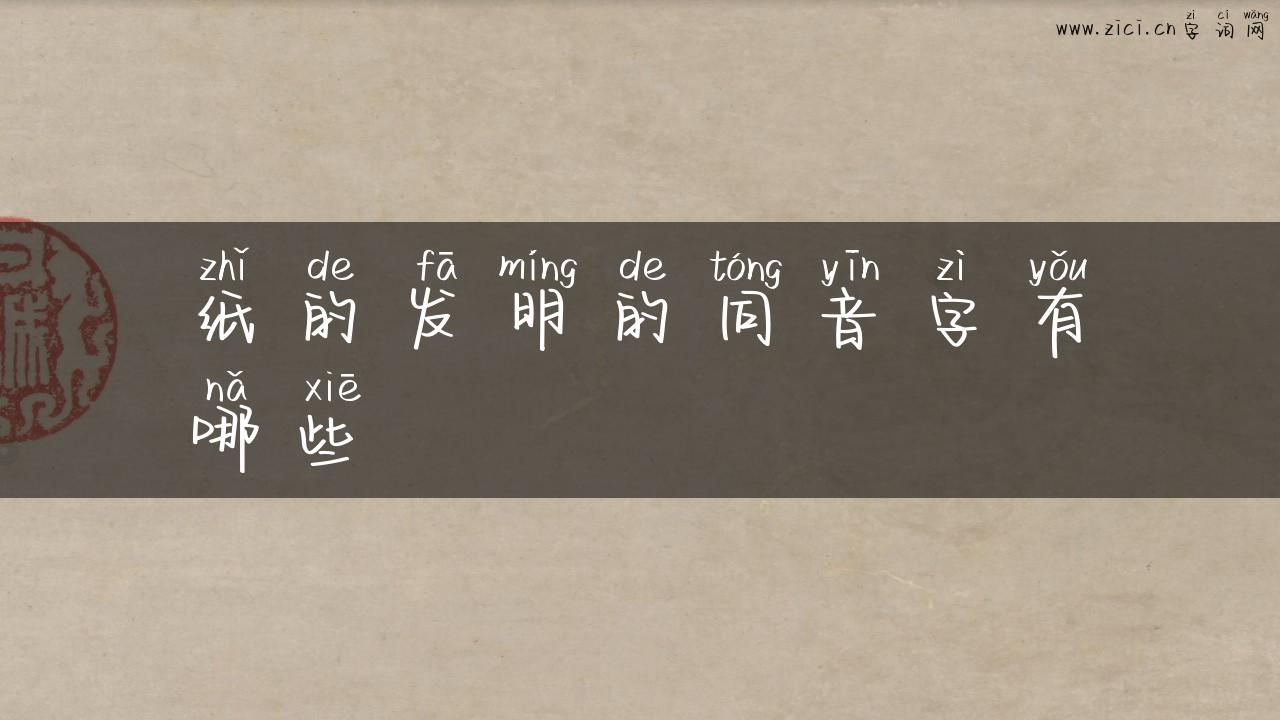 zì cí wǎng
www.zici.cn 字词网
zhǐ de fā míng de tóng yīn zì yǒu
纸的发明的同音字有
nǎ xiē
哪些